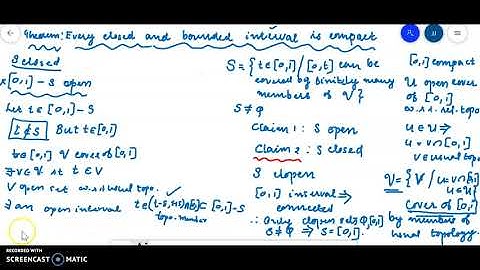 Theorem: Every closed and bounded interval is compact
S closed
[0,1] - S open
Let t ∈ [0,1] - S
t ∉ S But t ∈ [0,1]
t ∈ [0,1] V cover of [0,1]
∃ V ∈ V s.t t ∈ V
V open set w.r.t usual topo.
∃ an open interval t ∈ (t-δ, t+δ) ∩ [0,1] ⊂ [0,1] - S
S = {t ∈ [0,1] / [0,t] can be
covered by finitely many
members of V}
S ≠ φ
Claim 1: S open
Claim 2: S closed
S clopen
[0,1] interval ⇒
connected
∴ Only clopen sets φ, [0,1]
S ≠ φ ⇒ S = [0,1].
[0,1] compact
U open cover
of [0,1]
w.r.t rel. topo
u ∈ U ⇒
u = V ∩ [0,1]
V ∈ usual topo
V = {V / u = V ∩ [0,1]
u ∈ U}
cover of [0,1]
by members of
usual topology.
RECORDED WITH
SCREENCAST MATIC